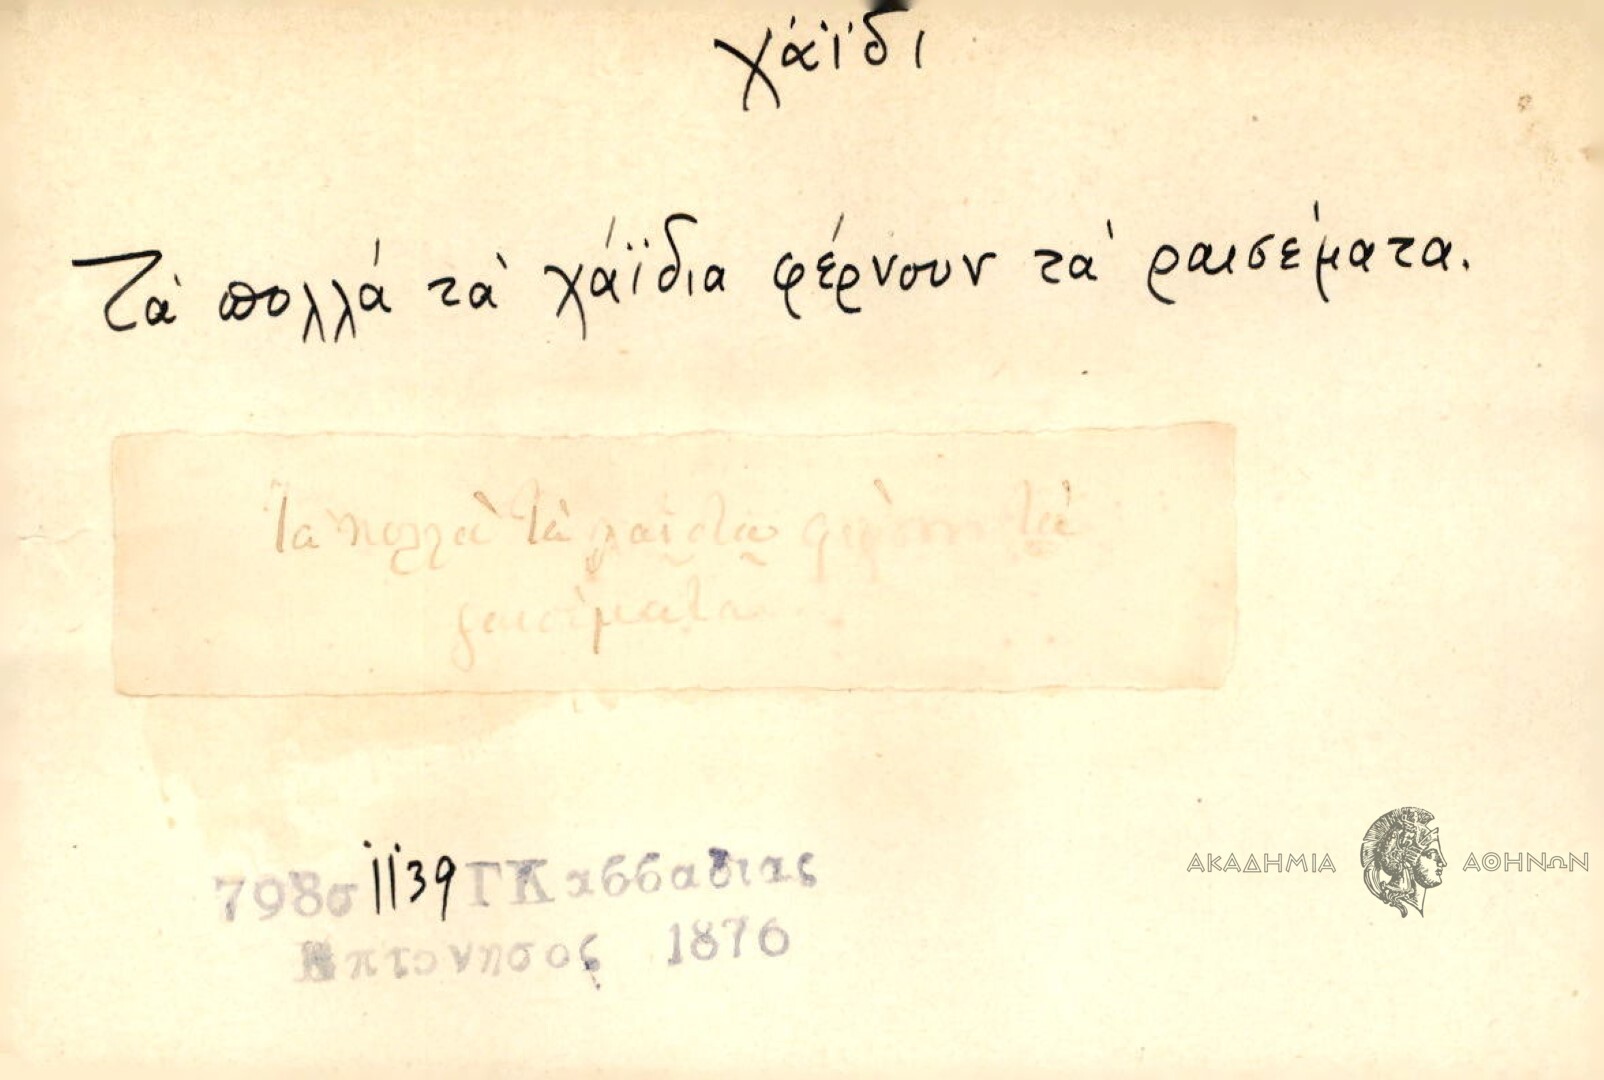 χάϊδι
Τὰ πολλά τὰ χάϊδια φέρνουν τὰ ραισέματα.
Τα πολλὰ τὰ χαΐδια φέρνουν τὰ
ραισίματα
798σ 1139 ΓΚαββαδιας
Επτονησος 1876
ΑΚΑΔΗΜΙΑ ΑΘΗΝΩΝ